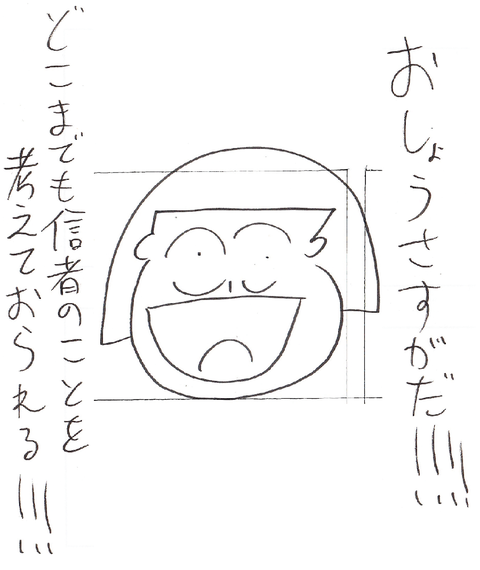 おしょうさすがだ!!!!
どこまでも信者のことを
考えておられる!!!